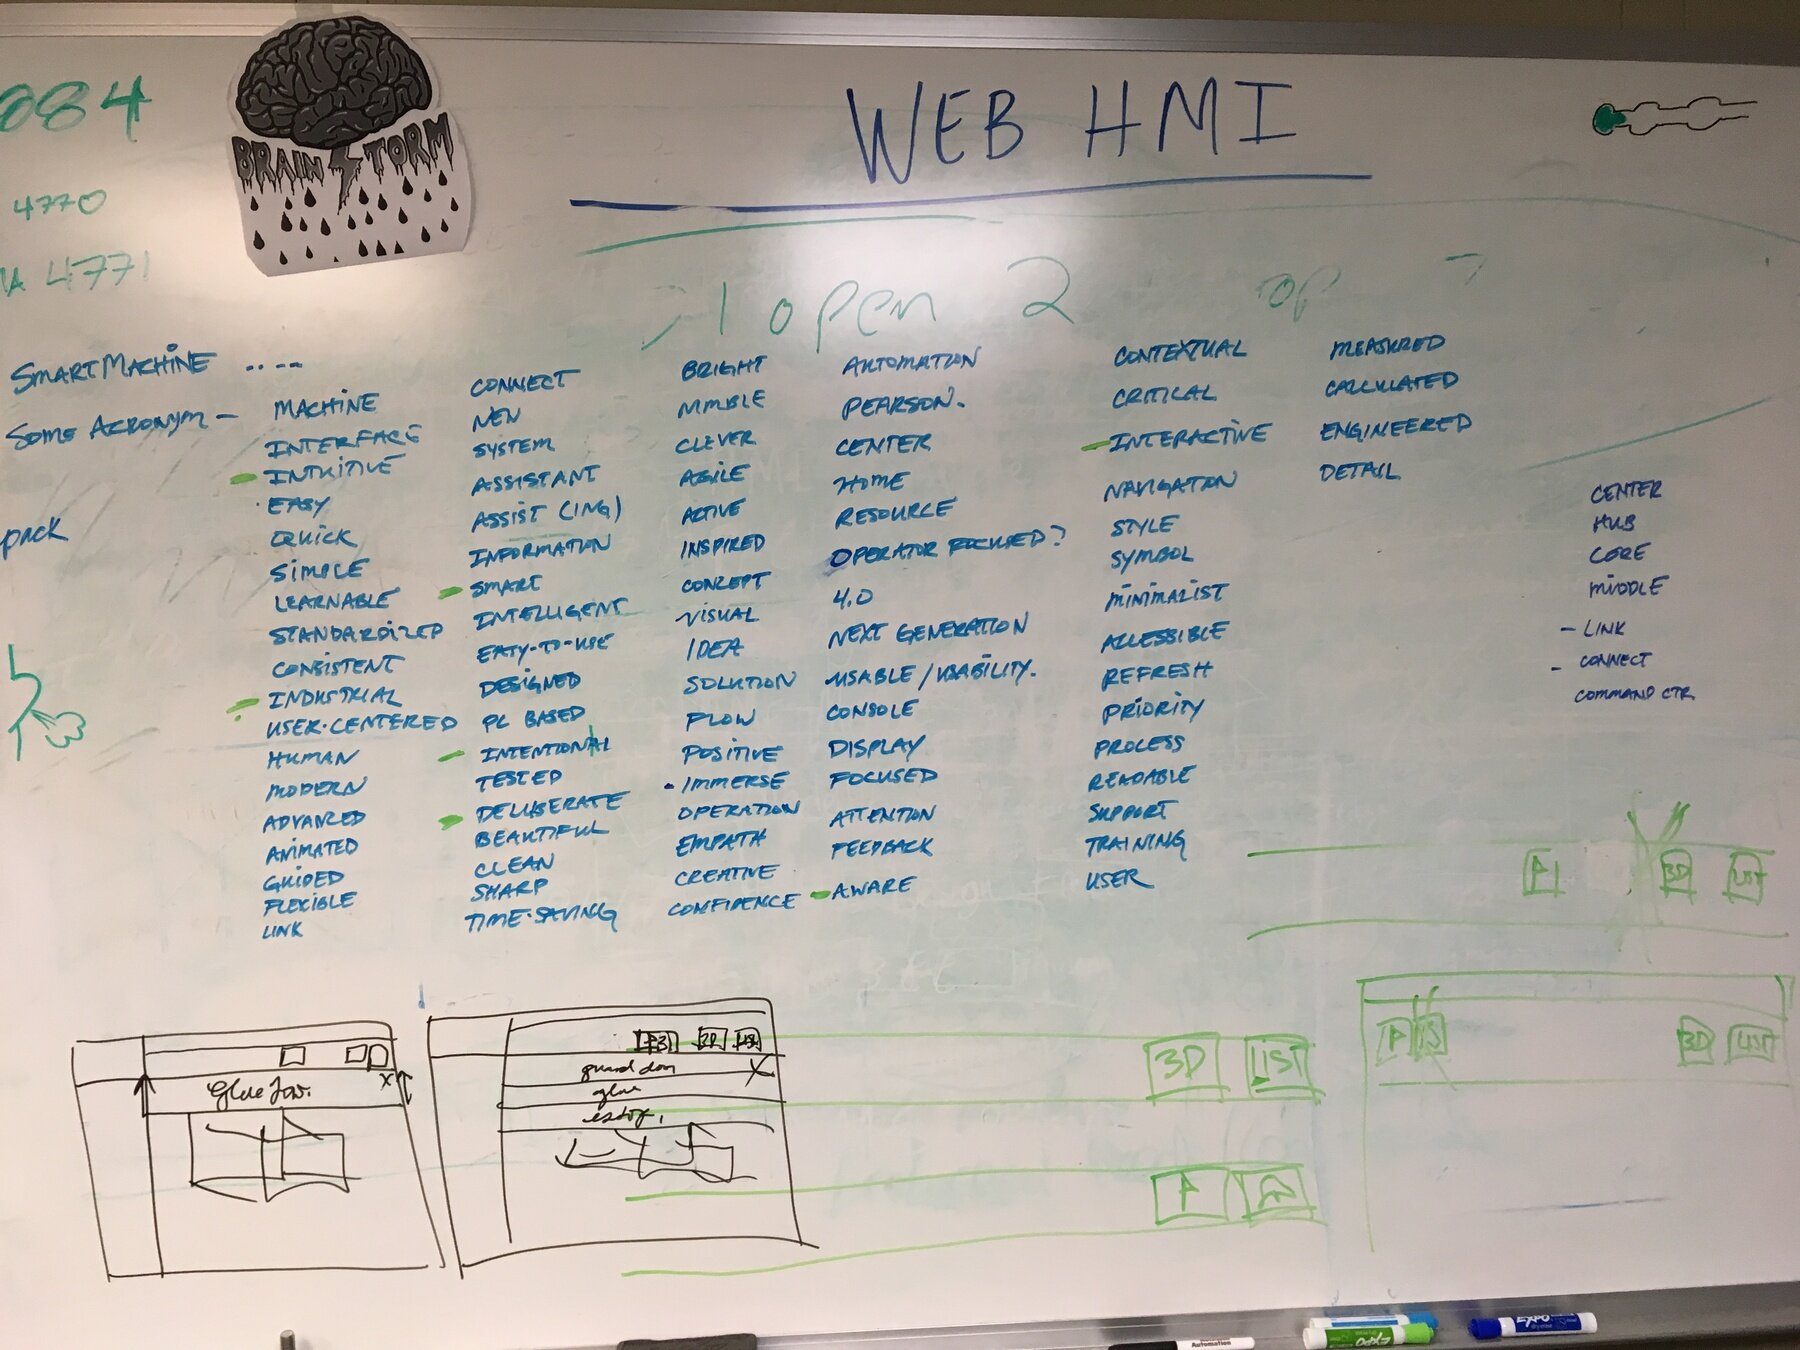 084
BRAIN STORM
WEB HMI
4770
4771
1 open 2
op
SMART MACHINE
SOME ACRONYM -
pack
MACHINE
INTERFACE
INTUITIVE
EASY
QUICK
SIMPLE
LEARNABLE
STANDARDIZED
CONSISTENT
INDUSTRIAL
USER-CENTERED
HUMAN
MODERN
ADVANCED
ANIMATED
GUIDED
FLEXIBLE
LINK
CONNECT
NEW
SYSTEM
ASSISTANT
ASSIST (ING)
INFORMATION
SMART
INTELLIGENT
EASY-TO-USE
DESIGNED
PC BASED
INTENTIONAL
TESTED
DELIBERATE
BEAUTIFUL
CLEAN
SHARP
TIME-SAVING
BRIGHT
NIMBLE
CLEVER
AGILE
ACTIVE
INSPIRED
CONCEPT
VISUAL
IDEA
SOLUTION
FLOW
POSITIVE
IMMERSE
OPERATION
EMPATH
CREATIVE
CONFIDENCE
AUTOMATION
PEARSON.
CENTER
HOME
RESOURCE
OPERATOR FOCUSED?
4.0
NEXT GENERATION
USABLE/USABILITY.
CONSOLE
DISPLAY
FOCUSED
ATTENTION
FEEDBACK
AWARE
CONTEXTUAL
CRITICAL
INTERACTIVE
NAVIGATION
STYLE
SYMBOL
MINIMALIST
ACCESSIBLE
REFRESH
PRIORITY
PROCESS
READABLE
SUPPORT
TRAINING
USER
MEASURED
CALCULATED
ENGINEERED
DETAIL
CENTER
HUB
CORE
MIDDLE
- LINK
- CONNECT
COMMAND CTR
P 3D LIST
P 3D LIST
3D LIST
P
3D LIST
guard door
glue
X
X
Automation
EXPO
EXPO